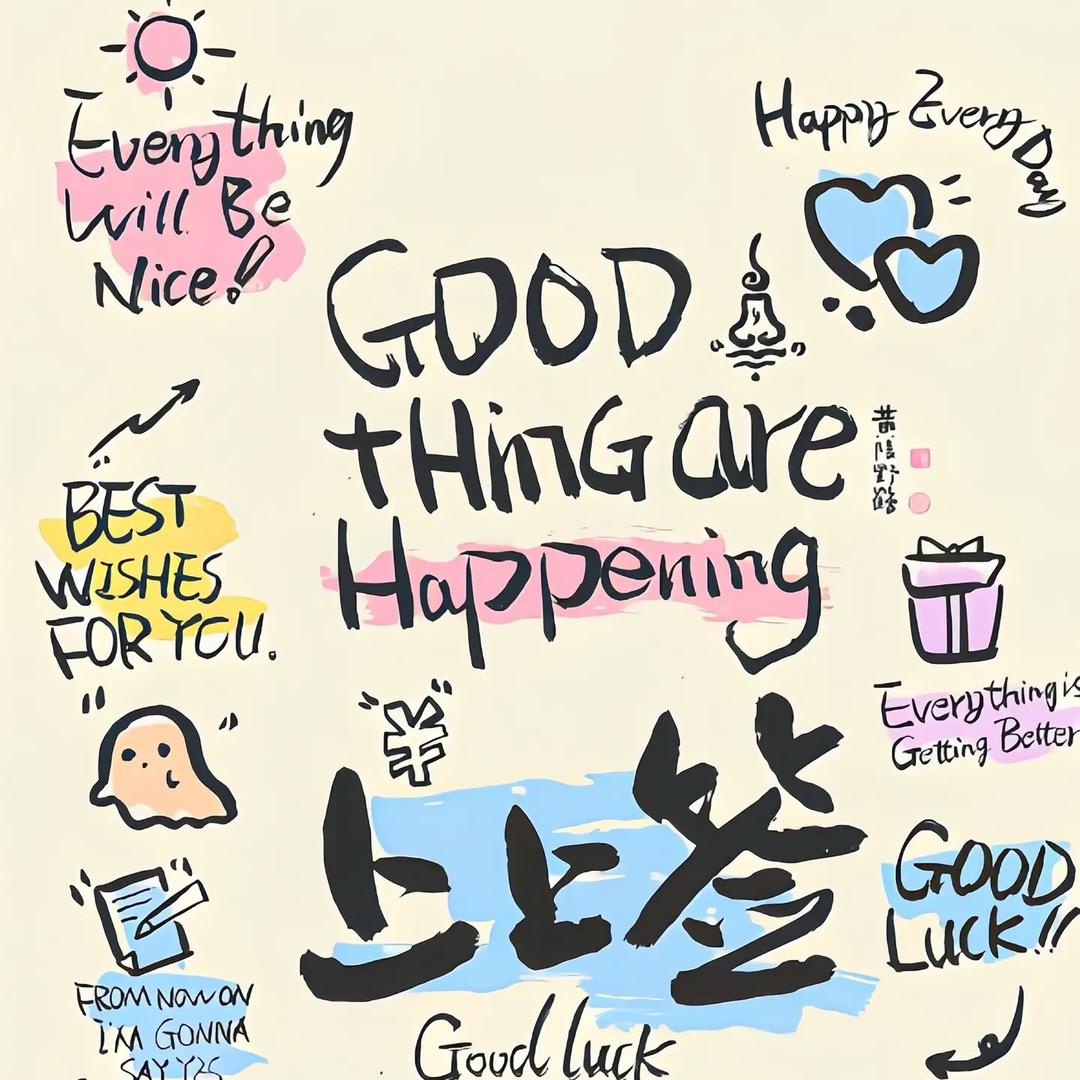 Everything
Will Be
Nice!
Happy Every Day
GOOD
tHinG are
Happening
BEST
WISHES
FOR YOU.
Everything is
Getting Better
上上签
GOOD
LUCK!!
FROM NOW ON
I'M GONNA
SAY YES
Good luck